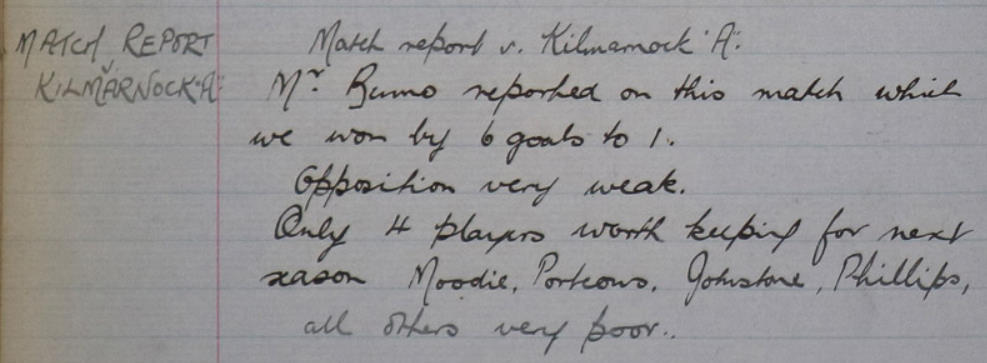 MATCH REPORT
v
KILMARNOCK "A"
Match report v. Kilmarnock "A".
Mr. Burns reported on this match which
we won by 6 goals to 1.
Opposition very weak.
Only 4 players worth keeping for next
season Moodie, Porteous, Johnstone, Phillips,
all others very poor..